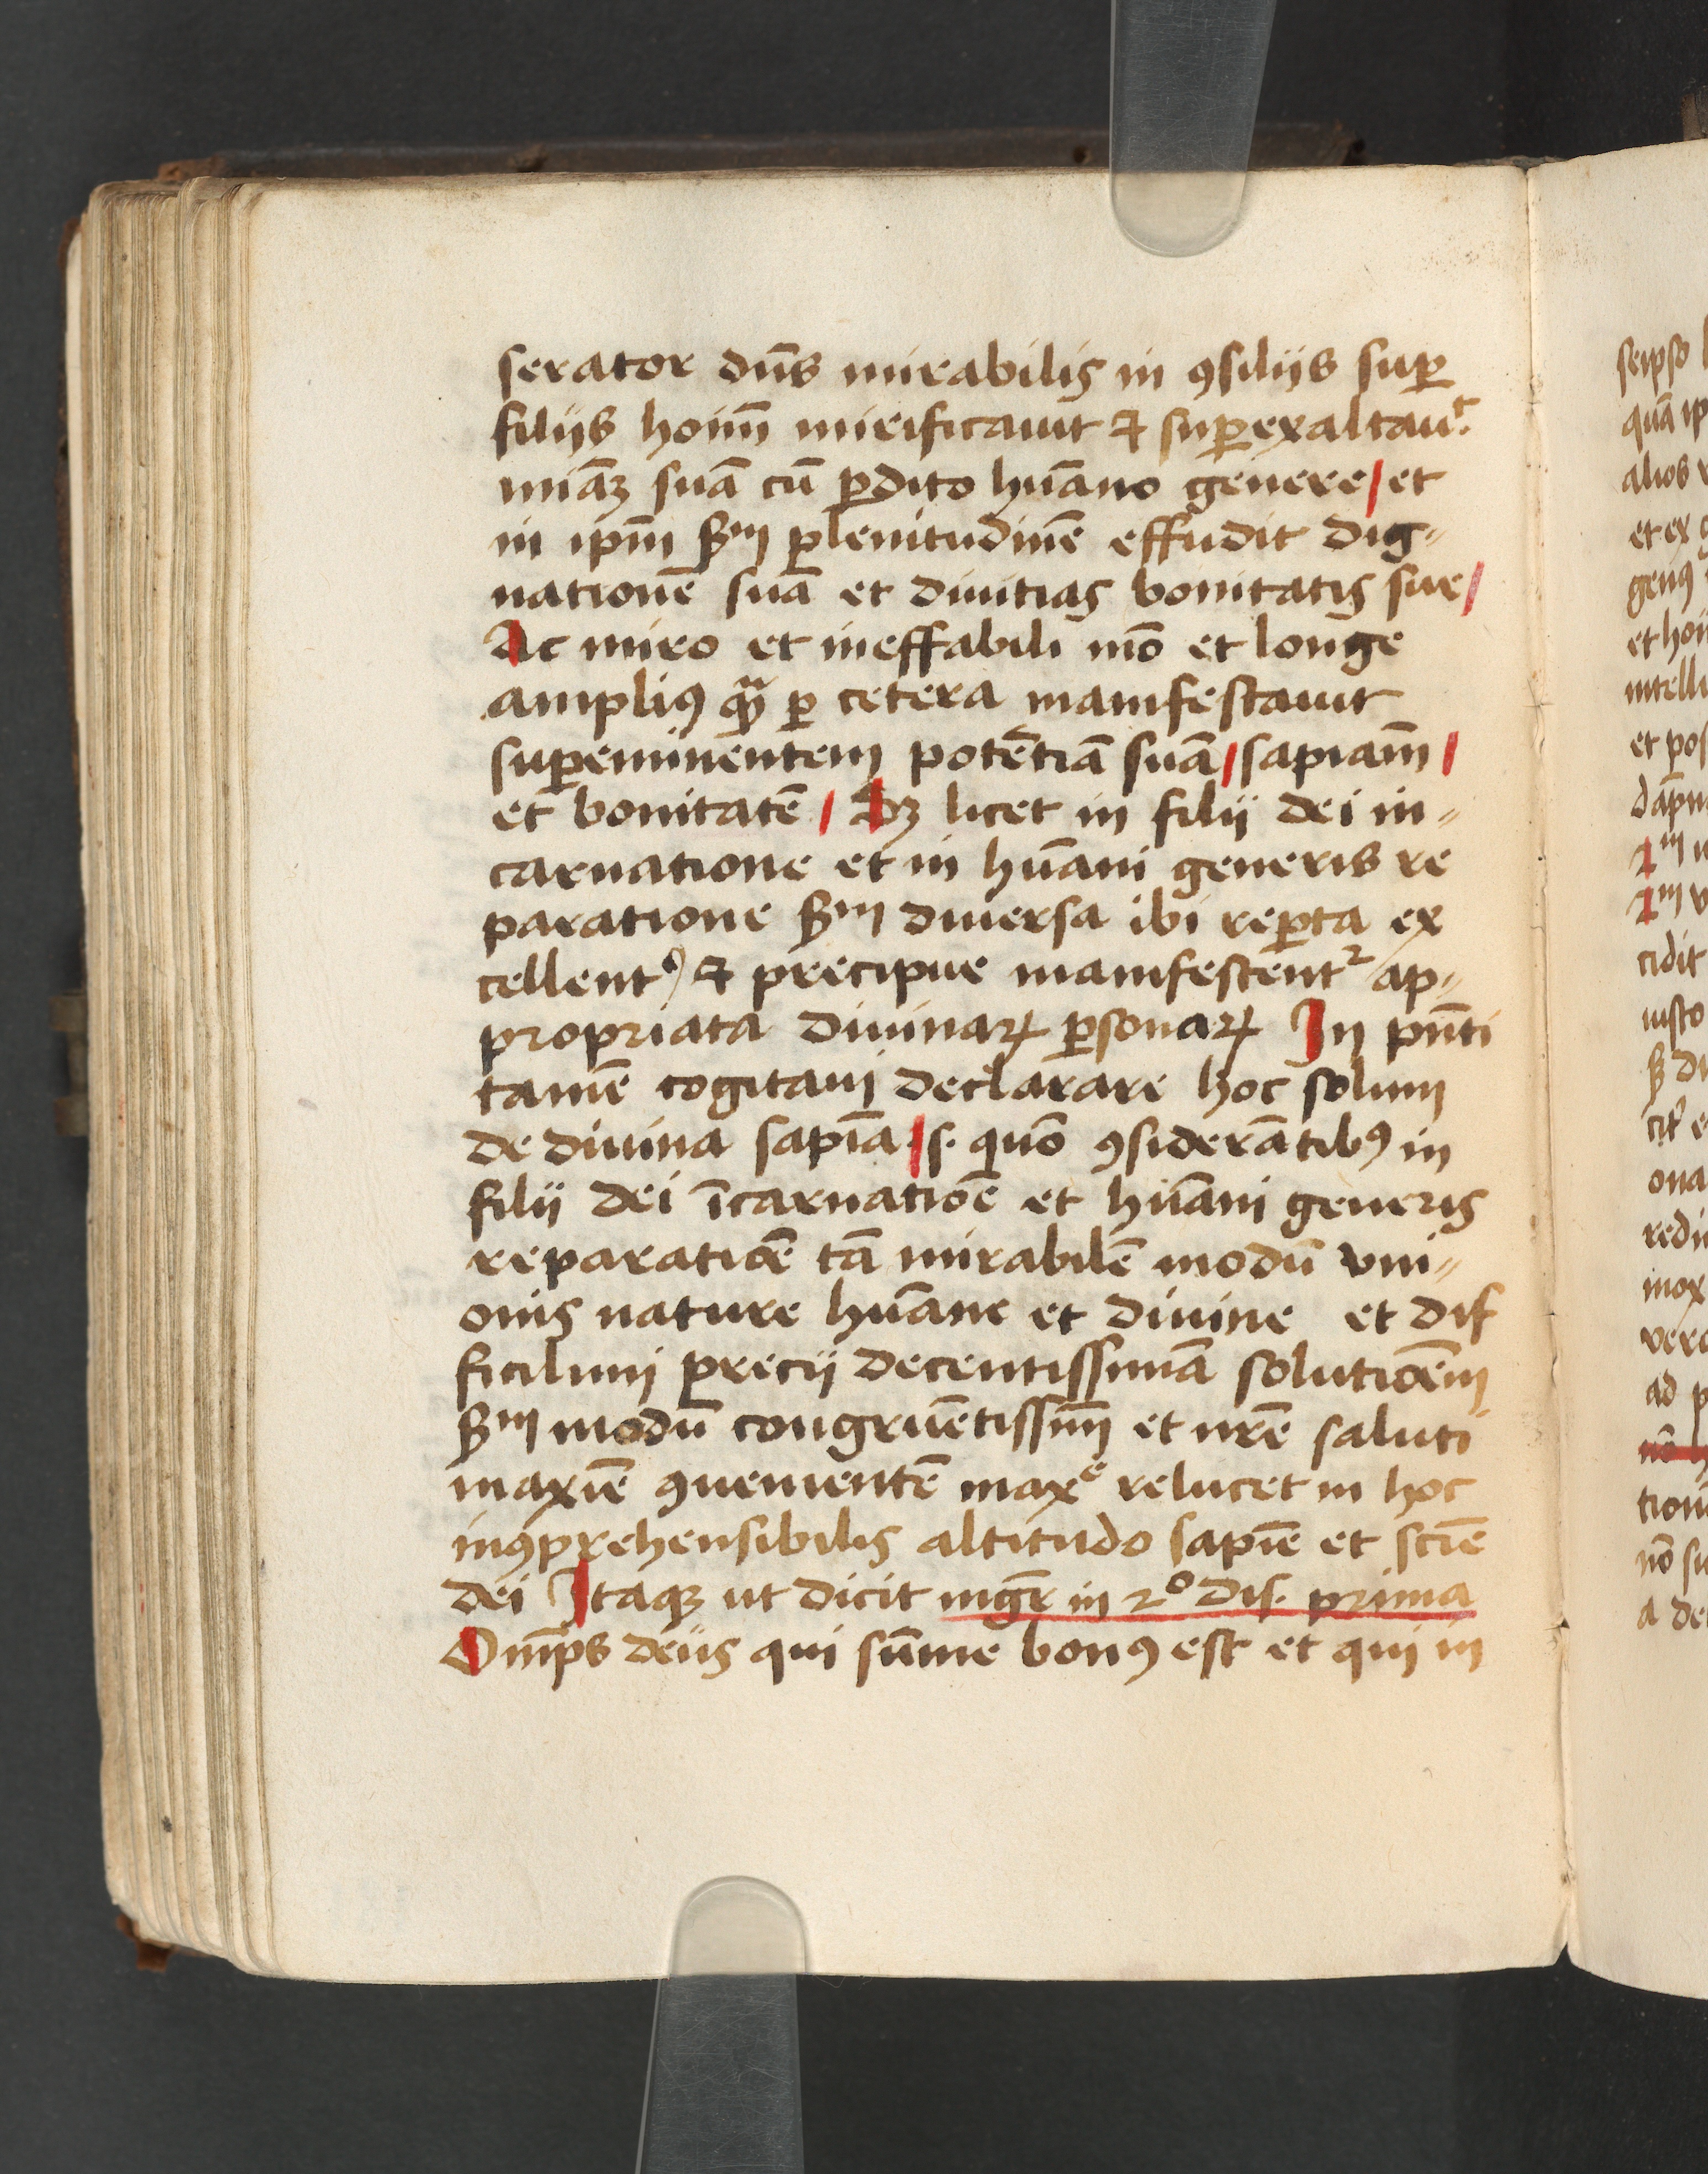 serator dn̄s mirabilis in ꝯsilijs suꝑ
filijs hoīm̄ mirificauit ⁊ suꝑexaltauᵗ.
miāꝫ suā cū ꝑdito hūano genere / et
in ip̄m ẜm plenitudinē effudit dig⸗
nationē suā et diuitias bonitatis sue /
Ac miro et ineffabili mō et longe
amplīꝰ qᷓm ꝑ cetera manifestauit
suꝑeminentem potētiā suā / sapiam̄ /
et bonitatē / Sꝫ licet in filij dei in⸗
carnatione et in hūani generis re
paratione ẜm diuersa ibi reꝑta ex
cellentꝰ ⁊ precipue manifestent᷑ ap⸗
propriata diuinaꝝ ꝑsonaꝝ In pn̄ti
tamē cogitaui declarare hoc solum
de diuina sapīa / s. quō ꝯsiderātibꝰ in
filij dei īcarnatiōe et hūani generis
reparatiōe tā mirabilē modū vni⸗
onis nature hūane et diuine et dif
ficilimi precij decentissimā solutiōem
ẜm modū congruētissim̄ et nr̄e saluti
maxīe ꝯuenientē maxᵉ relucet in hoc
inꝯprehensibilis altitudo sapīe et scīe
dei Itaqꝫ ut dicit mgr̄ in 2º dis. prima
Om̄ps deus qui sūme bonꝰ est et qui in
seipso
quā ip
alios
et ex
genꝰ
et hoī
intelli
et pos
cidit
iusto
ona
mox
ad p
nō
nō su
a de